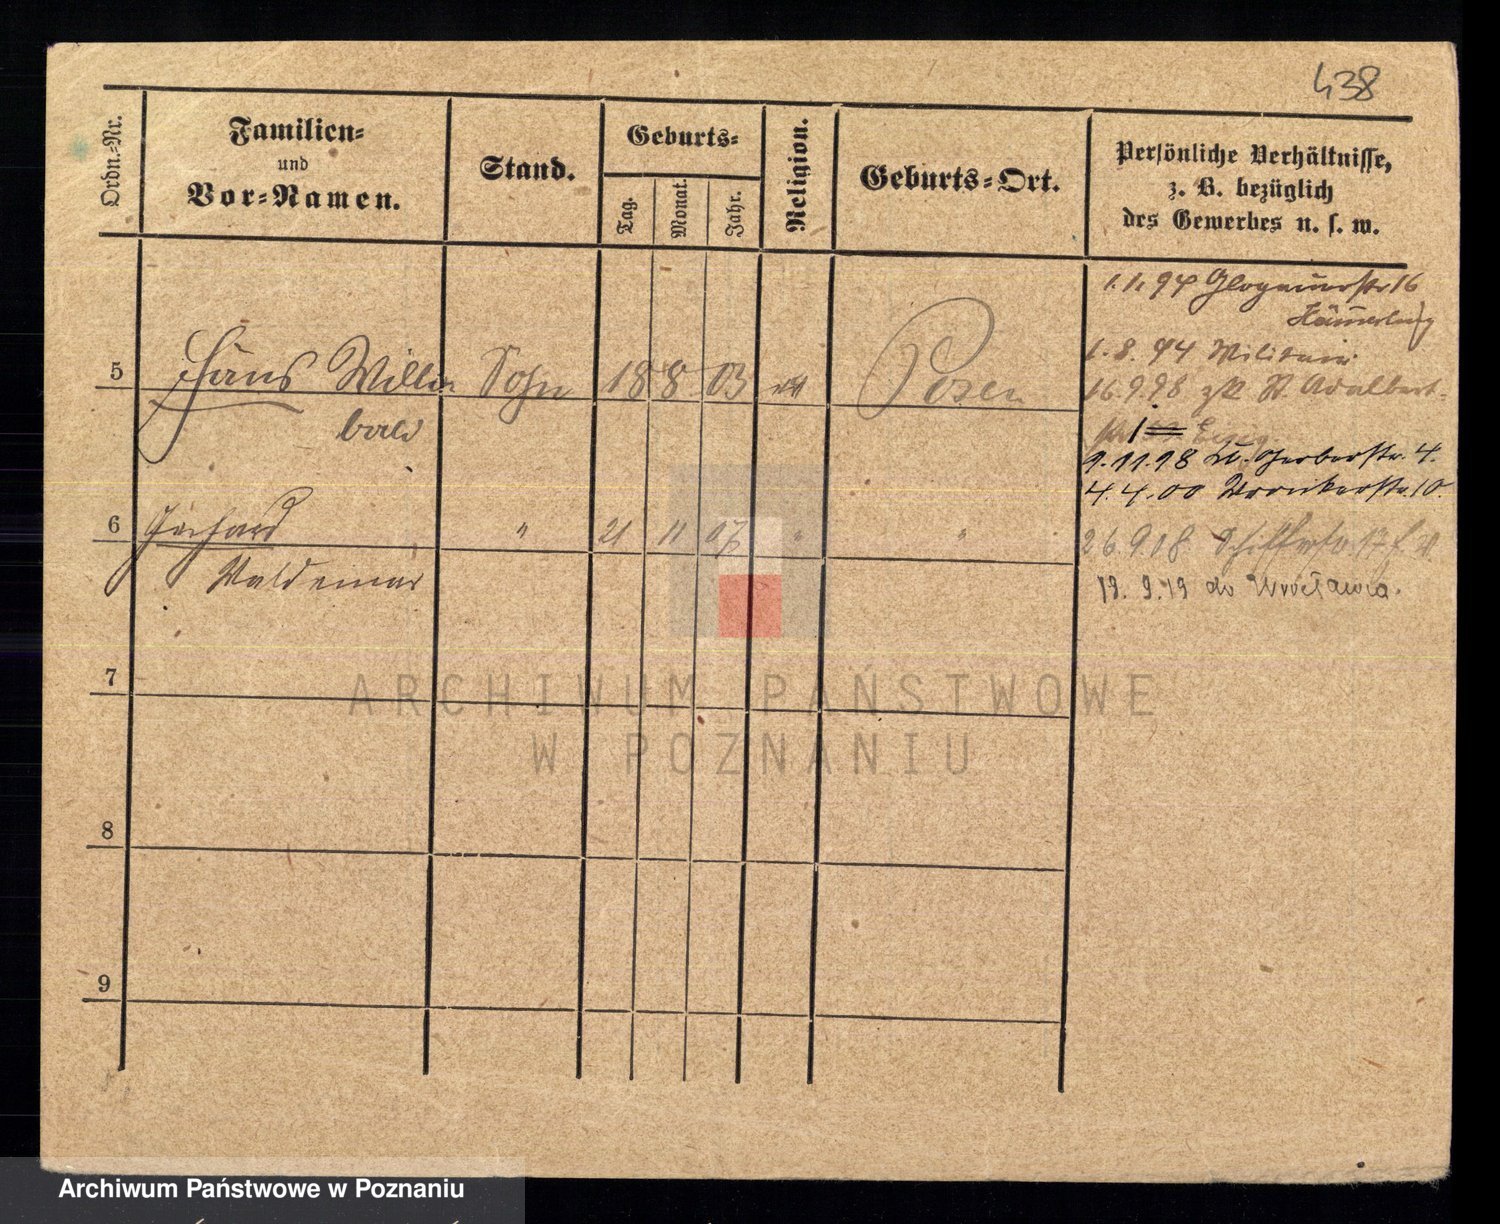 438
Ordn.-Nr.
Familien-
und
Vor-Namen.
Stand.
Geburts-
Tag.
Monat.
Jahr.
Religion.
Geburts-Ort.
Persönliche Verhältnisse,
z. B. bezüglich
des Gewerbes u. s. w.
1.1.94 Glogauerstr 16
5 Hans Willi Sohn 18 8 03 Posen
bald
1.8.94 Militair
16.9.98 St Adalbert-
9.11.98 Gerberstr. 4.
4.4.00 Wronkerstr. 10.
6 Gerhard " 21 11 07 " "
Waldemar
26.9.08
19.9.19 do Wrocławia.
7
8
9
ARCHIWUM PAŃSTWOWE
W POZNANIU
Archiwum Państwowe w Poznaniu